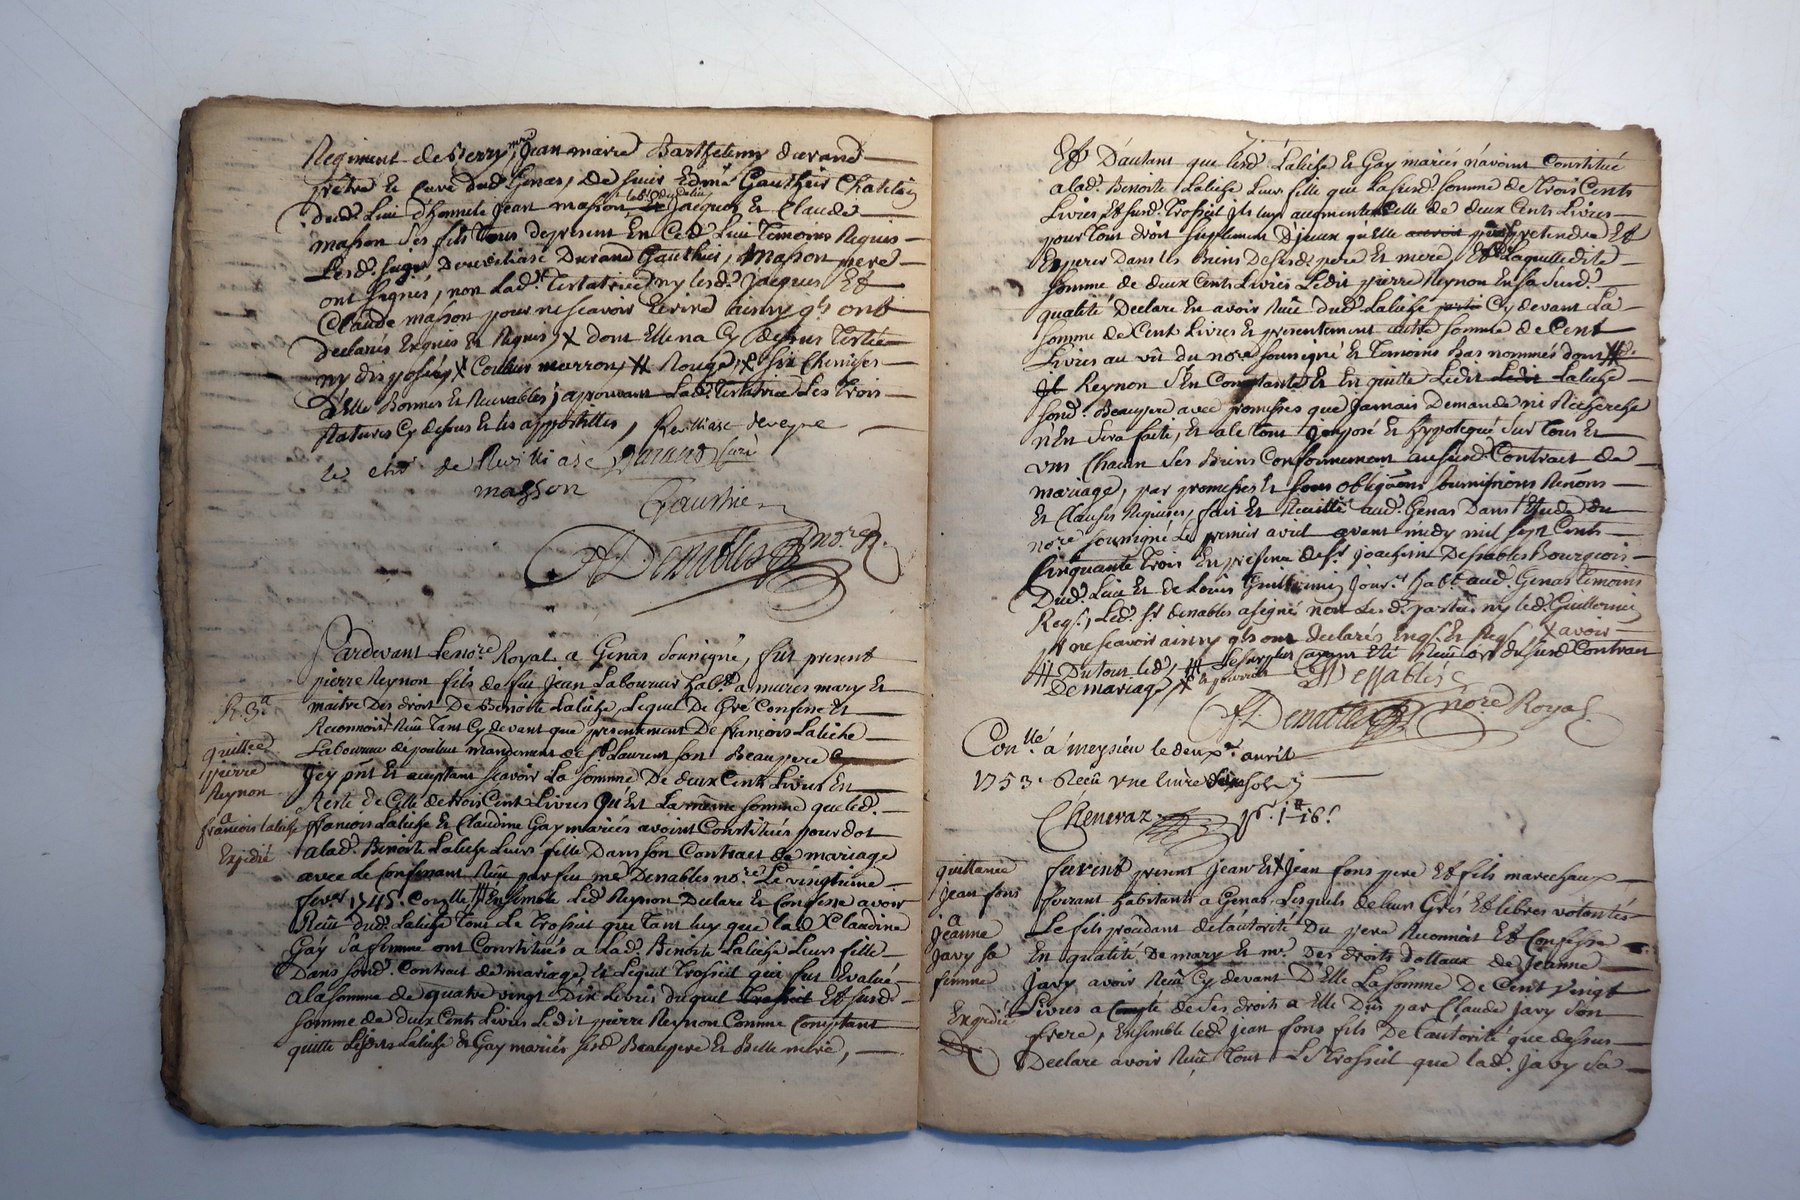 Regiment de Berry, mre Jean marie Barthelemy durand
prêtre et curé dud. Genas, de sieur Edmé Gauthier Chatelain
dud. Lieu d'honnete Jean masson Jacques et Claude
masson ses fils Tous depresent En Ced. Lieu Temoins Requis
Lesd. Durand Gauthier, Masson pere
ont signés, non Lad. Testatrice ny lesd. Jacques Et
Claude masson pour ne scavoir Ecrire ainsy qls ont
declarés Enquis et Requis, X dont Elle na Cy dessus Testée
ny disposée, X Couleur marron, # Rouge, X six Chemises
d'Elle Bonnes et Recevables, aprouvant Lad. Testatrice Les trois
Ratures Cy dessus et les appostilles, Revilliasc deveyne
le chr de Revilliasc Durand Curé
masson
Gauthier
Denables nore R.
Pardevant Le nore Royal a Genas Sousigné, fut present
pierre Reynon fils de feu Jean Laboureur habt a mures mary et
maitre Des droit De Benoite Laliche, Lequel De Gré Confesse et
Reconnoit Reçu Tant Cy devant que presentement De francois Laliche
Laboureur mandement de St Laurent son Beaupere
Icy pnt Et acceptant scavoir La somme De deux Cents Livres En
Reste de Celle de trois Cent Livres qu'Est La même somme que led.
francois Laliche et Claudine Gay mariés avoint Constitués pour dot
a lad. Benoite Laliche Leurs fille Dans son Contract de mariage
avec le Confessant Reçu par feu me Denables nore Le vingtieme
fevrer 1745. # Ensemble Led. Reynon Declare et Confesse avoir
Reçu dud. Laliche Tout Le Trosseil que tant luy que lad. Claudine
Gay sa femme ont Constitués a Lad. Benoite Laliche Leurs fille
Dans sond. Contract de mariage, et Lequel Trosseil qui fut Evalué
a la somme de quatre vingt Dix Livres duquel Trosseil Et susd.
somme de deux Cents Livres Le dit pierre Reynon Comme Comptant
quitte Lesdits Laliche et Gay mariés sesd. Beaupere Et Belle mere,
quittce
pierre
Reynon
a
francois laliche
Expedié
Et D'autant que lesd. Laliche et Gay mariés n'avoint Constitué
a lad. Benoite Laliche Leurs fille que La susd. somme de trois Cents
Livres Et susd. Trosseil ils luy augmentent Celle de deux Cents Livres
pour Tout droit suplement D'iceux qu'Elle pretendre Et
Esperer Dans les Biens De sesd. pere Et mere, Et de Laquelle dite
somme de deux Cents Livres Ledit pierre Reynon En sa susd.
qualité Declare En avoir Reçu dud. Laliche Cy devant La
somme de Cent Livres Et presentement autre somme de Cent
Livres au vû du nore sousigné Et Temoins bas nommés dont
Reynon s'En Contante Et En quitte Ledit Ledit Laliche
sond. Beaupere avec promesses que Jamais Demande ni Recherche
n'En sera faite, Et a le tout Imposé Et hypotequé sur Tous Et
uns Chacun ses Biens Conformement au susd. Contract de
mariage, par promesses Et sous obligaons soumissions Renons
Et Clauses Requises, fait Et Recitté aud. Genas Dans l'Etude du
nore sousigné Le premier avril avant midy mil sept Cents
Cinquante trois En presence de sr Joachim Desnables Bourgeois
Dud. Lieu Et de Louis Guillermin Jourr habt aud. Genas Temoins
Reqs, Led. sr denables a signé non Lesd. parties ny led. Guillermin
pr ne scavoir ainsy qls ont declarés Enqs Et Reqs X avoir
Reçu lors du susd. Contract
De mariage
nore Royal
Conllé a meysieu le deuxe avril
1753. Reçu une livre seize sols
Cheneraz
quittance
jean fons
a
jeanne
javy sa
femme
Expedié
furent present Jean Et X Jean fons pere Et fils marechaux
ferrant habitants a Genas, Lesquels de leurs Grés Et libres volontés
Le fils procedant de l'autorité Du pere Reconnoit Et Confesse
En qualité De mary et mre Des droits dottaux de Jeanne
Javy, avoir Reçu Cy devant D'Elle La somme De Cent Vingt
Livres a Compte de ses droits a Elle Dûs par Claude Javy son
frere, Ensemble led. jean fons fils De l'autorité que dessus
Declare avoir Reçu Tout Le Trosseil que lad. Javy sa